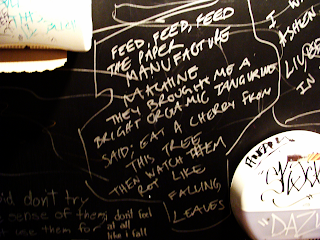 FEED FEED, FEED
THE PAPER
MANUFACTURE
MACHINE
THEY BROUGHT ME A
BRIGHT ORGANIC TANGURINE
SAID: EAT A CHERRY FROM
THIS TREE
THEN WATCH THEM
ROT LIKE
FALLING
LEAVES
I
ASHEN
IN
don't try
sense of them
use them for
don't feel
at all
like i fall
"DAZ